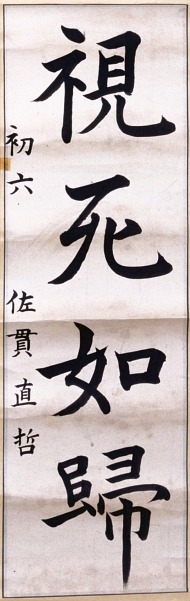 視死如歸
初六 佐貫直哲